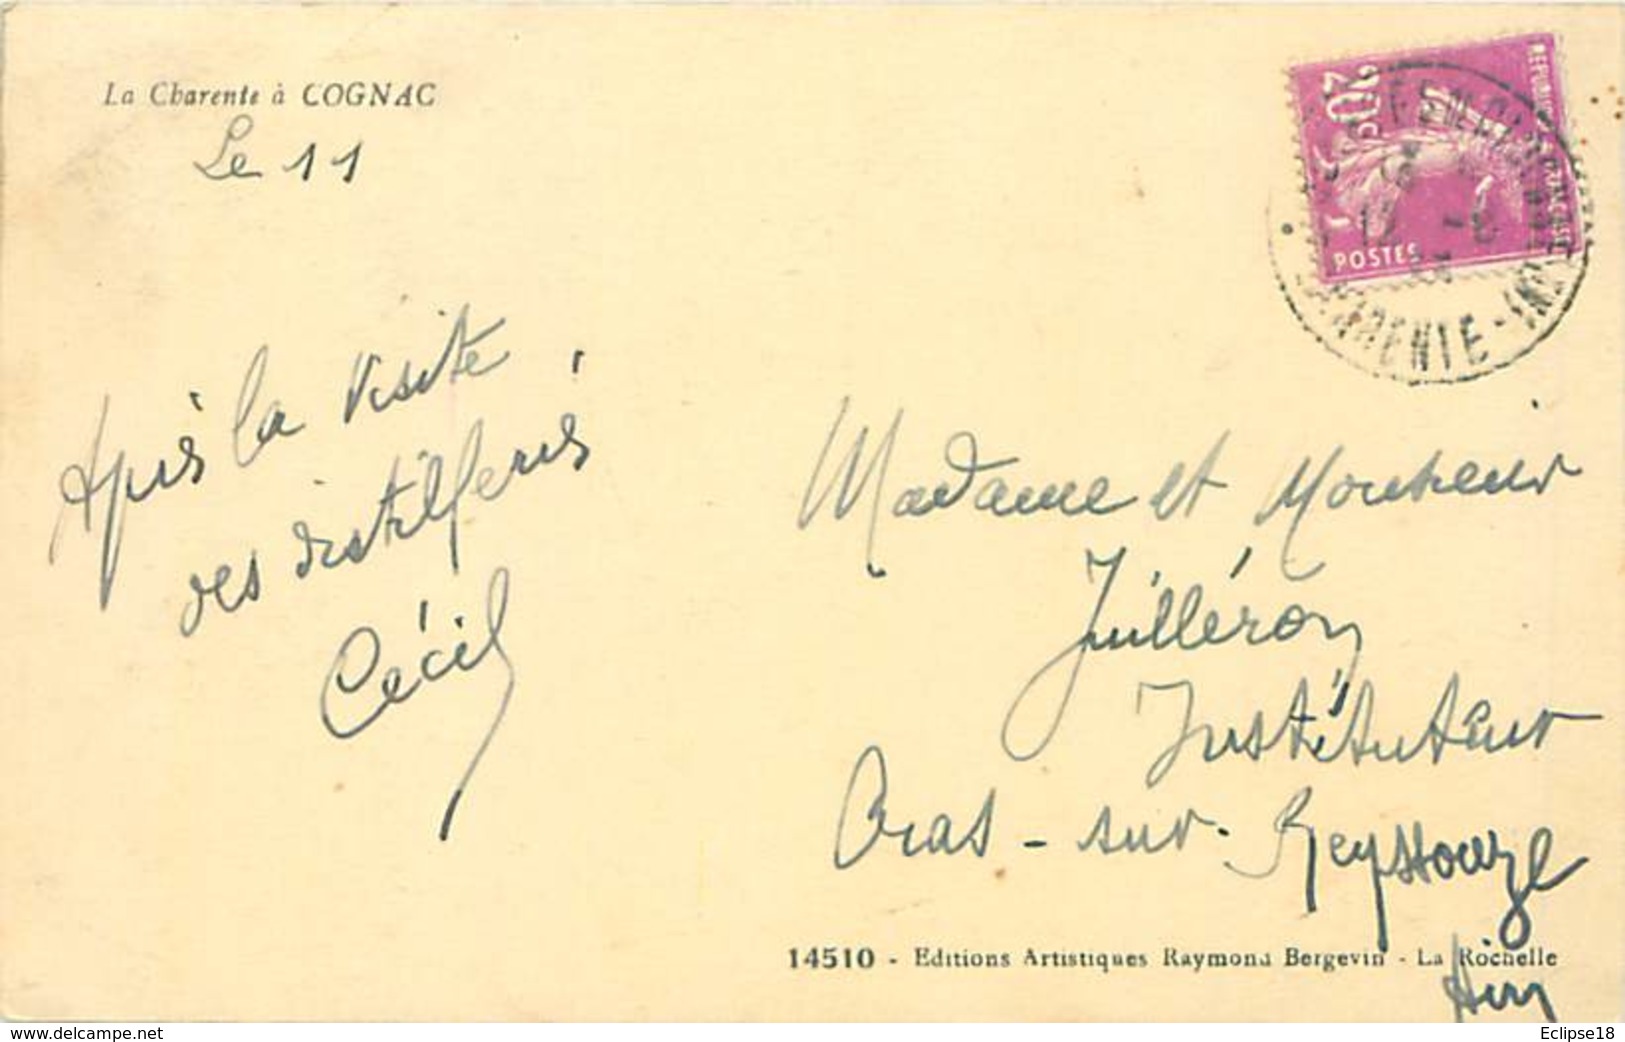 La Charente à COGNAC
Le 11
Après la visite
des distilleries
Cécil
20c
POSTES
Madame et Monsieur
Juilléron
Instituteur
Cras-sur-Reyssouze
Ain
14510 - Editions Artistiques Raymond Bergevin - La Rochelle
www.delcampe.net
Eclipse18